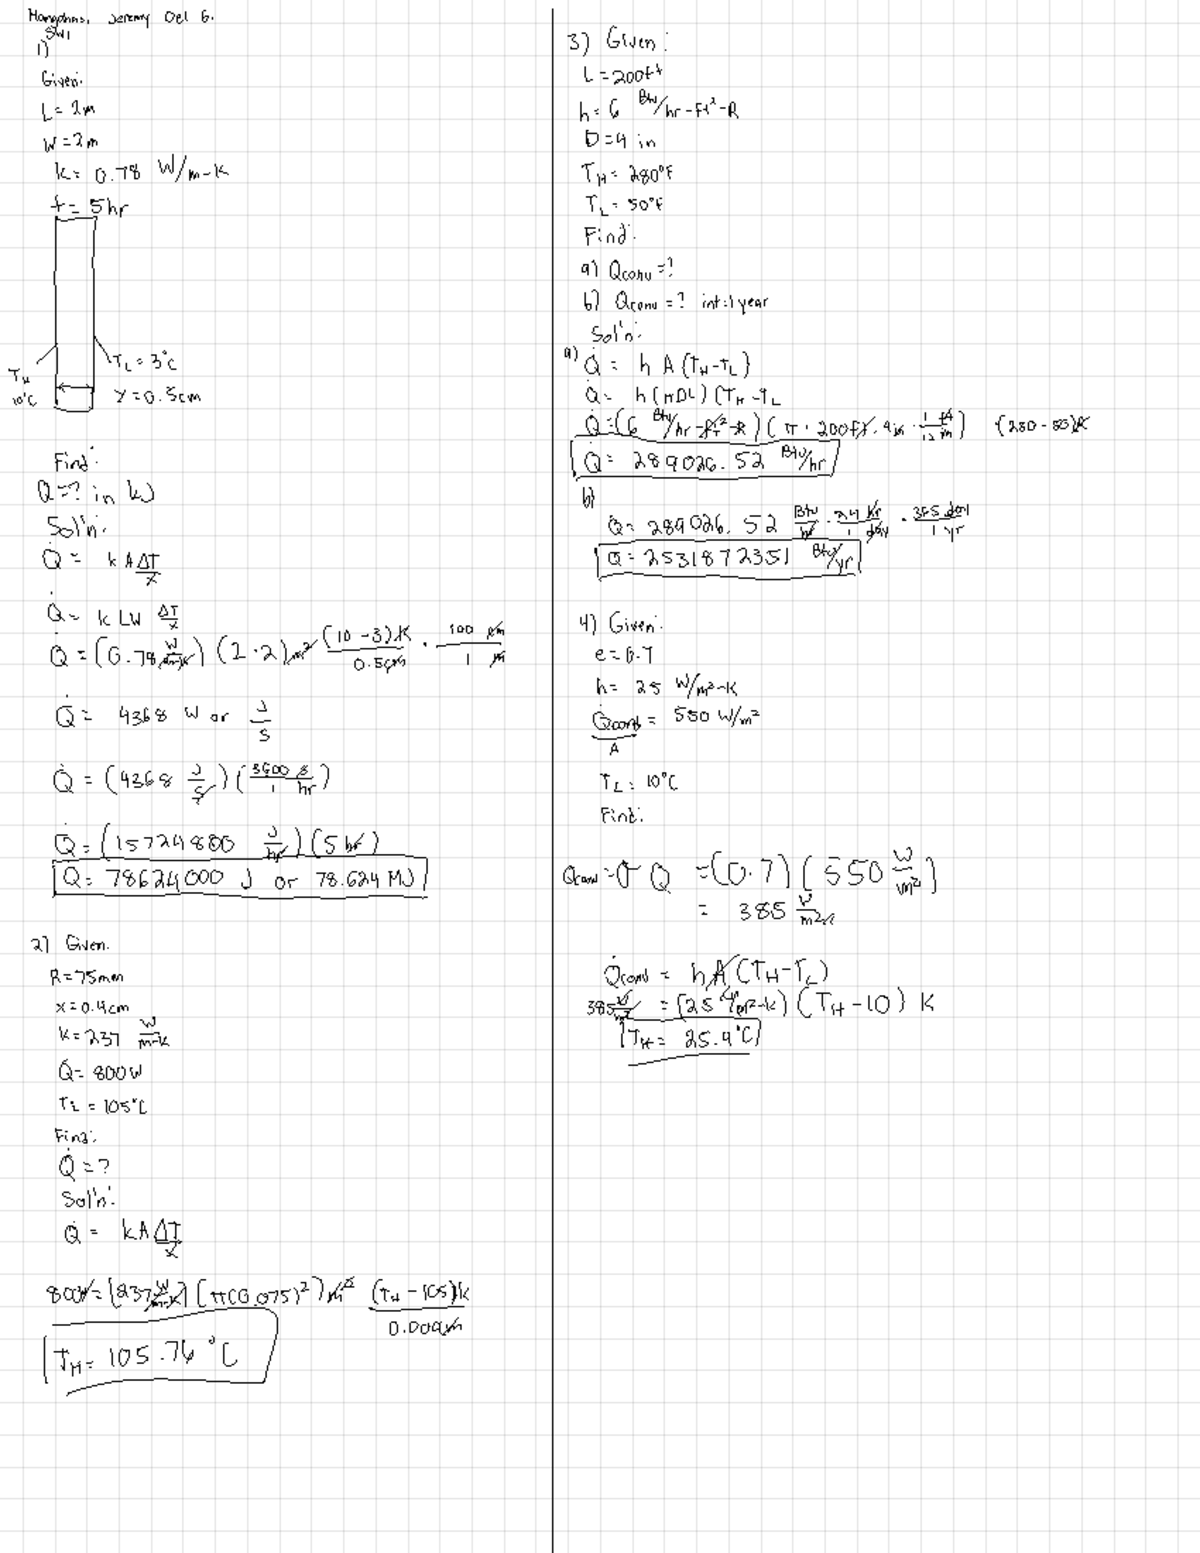 Jeremy Del G.
SW1
1)
Given:
L = 2m
W = 2m
k = 0.78 W/m-K
t = 5hr
T_H
10°C
T_L = 3°C
x = 0.5cm
Find:
Q = ? in kJ
Sol'n:
Q̇ = kA ΔT/x
Q̇ = k LW ΔT/x
Q̇ = (0.78 W/m-K) (2·2)m² (10-3)K/0.5cm · 100 cm/1 m
Q̇ = 4368 W or J/S
Q̇ = (4368 J/S) (3600 s/1 hr)
Q̇ = (15724800 J/hr) (5 hr)
Q = 78624000 J or 78.624 MJ
2) Given:
R = 75mm
x = 0.4cm
k = 237 W/m-K
Q̇ = 800W
T_L = 105°C
Find:
Q̇ = ?
Sol'n:
Q̇ = kA ΔT/x
800W = (237 W/m-K) (π(0.075)²)m² (T_H - 105)K/0.004m
T_H = 105.76 °C
3) Given:
L = 200ft
h = 6 Btu/hr-ft²-R
D = 4 in
T_H = 280°F
T_L = 50°F
Find:
a) Qconv = ?
b) Qconv = ? in t=1 year
Sol'n:
a) Q̇ = h A (T_H - T_L)
Q̇ = h (πDL) (T_H - T_L
Q̇ = (6 Btu/hr-ft²-R) (π · 200ft · 4in · 1 ft/12 in) (280 - 50)R
Q̇ = 289026.52 Btu/hr
b)
Q̇ = 289026.52 Btu/hr · 24 hr/1 day · 365 day/1 yr
Q̇ = 2531872351 Btu/yr
4) Given:
e = 0.7
h = 25 W/m²-K
Q̇cond/A = 550 W/m²
T_L = 10°C
Find:
Qconv = σ Q = (0.7) (550 W/m²)
= 385 W/m²
Q̇conv = hA (T_H - T_L)
385 W/m² = (25 W/m²-K) (T_H - 10) K
T_H = 25.4°C